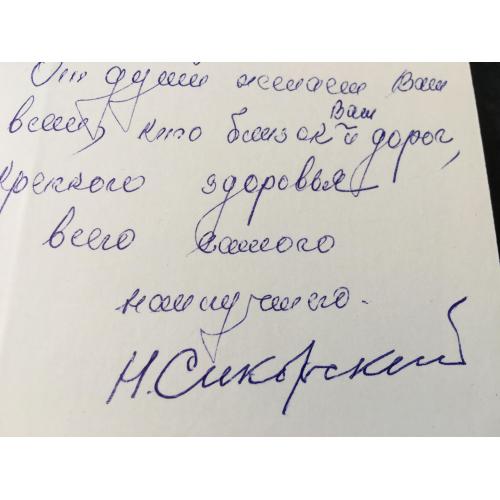 От души желаем Вам
всем, кто близок Вам и дорог,
крепкого здоровья
всего самого
наилучшего.
Н. Сикорский